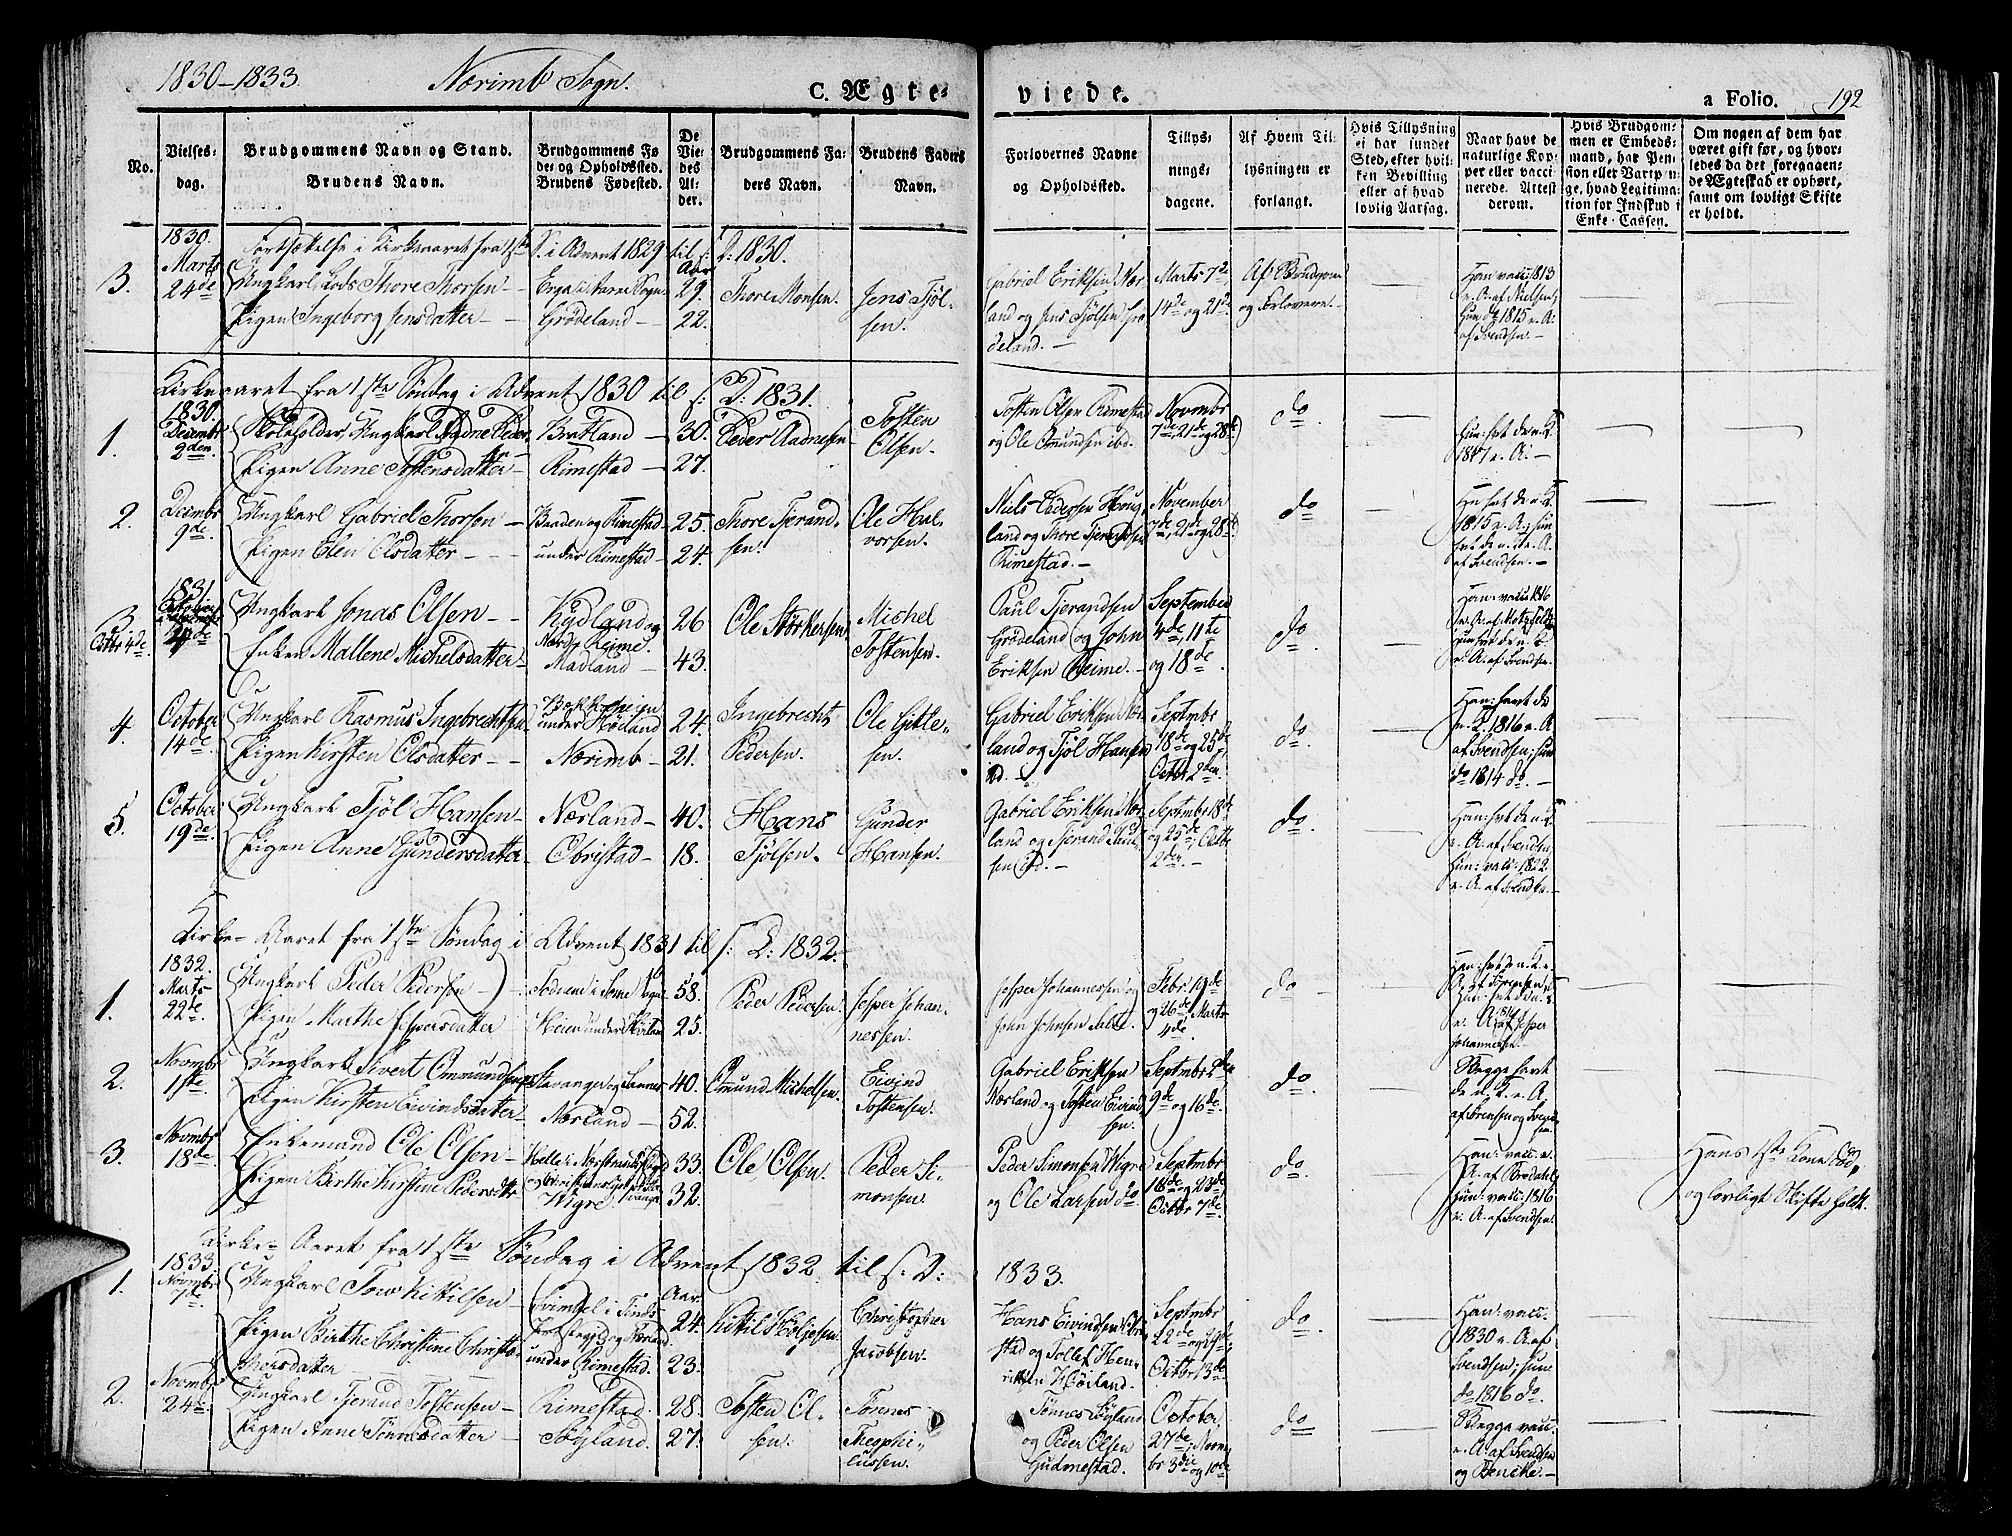 1830–1833. Nærimb Sogn. C. Ægte-
viede. a Folio. 192
No.
Vielses-
dag.
Brudgommens Navn og Stand.
Brudens Navn.
Brudgommens Fø-
de- og Opholdssted.
Brudens Fødested.
De
Vie-
des
Al-
der.
Brudgommens Fa-
ders Navn.
Brudens Faders
Navn.
Forlovernes Navne
og Opholdssted.
Tillys-
nings-
dagene.
Af Hvem Til-
lysningen er
forlangt.
Hvis Tillysning
ei har fundet
Sted, efter hvil-
ken Bevilling
eller af hvad
lovlig Aarsag.
Naar have de
naturlige Kop-
per eller vacci-
nerede. Attest
derom.
Hvis Brudgom-
men er Embeds-
mand, har Pen-
sion eller Vartpn-
ge, hvad Legitima-
tion for Indskud i
Enke-Cassen.
Om nogen af dem har
været gift før, og hvor-
ledes da det foregaaen-
de Ægteskab er ophørt,
samt om lovligt Skifte
er holdt.
1830. Fortsættelse i Kirkeaaret fra 1ste S. i Advent 1829 til s: D: 1830.
3.
Marts
24de
Ungkarl, Lods Thore Thorsen –
Pigen Ingeborg Jensdatter –
Grødeland –
Aar
29.
22.
Thore Monsen.
Jens Tjøl-
sen.
Gabriel Eriksen Nær-
land og Jens Tjølsen Grø-
deland. –
Marts 7de
14de og 21de
Af Brudgom
og Forlovere.
Han: vacc: 1813
e. A. af Nielsen;
Hun do 1815 e. A.
af Svendsen. –
Kirkeaaret fra 1ste Søndag i Advent 1830 til s: D: 1831.
1.
1830.
Decembr
2den
Skoleholder, Ungkarl Aadne Peder-
sen
Pigen Anne Tostensdatter –
Bratland –
Rimestad –
30.
27.
Peder Aadnesen
Tosten
Olsen.
Tosten Olsen Rimestad
og Ole Omundsen ibd.
Novembr
7de, 21de og 28de
do
Hun: havt de n. K.
1817 e. A. –
2.
Decembr
9de.
Ungkarl Gabriel Thorsen –
Pigen Elen Olsdatter –
Braden og Rimestad –
under Rimestad –
25.
24.
Thore Tjerand-
sen.
Ole Hal-
vorsen.
Niels Pedersen Haug-
land og Thore Tjerandsen
Rimestad. –
November
7de, 21de og 28de.
do
1815 e. A; hun
havt de n. K. e. A.
af Svendsen. –
3
Octbr 4de.
1831
Ungkarl Jonas Olsen –
Enken Mallene Michelsdatter –
Kydland og
Nord Reime.
Madland –
26
43.
Ole Storkersen
Michel
Tostensen.
Paul Tjerandsen
Grødeland og John
Eriksen Reime. –
September
4de, 11te
og 18de
do.
Han: vacc: 1816
Hun havt de n. K.
e. A. af Svendsen.
4.
October
14de
Ungkarl Rasmus Ingebrechtsen
Pigen Kirsten Olsdatter –
under Høiland
Nærimb –
24.
21.
Ingebrecht
Pedersen.
Ole Gitle-
sen.
Gabriel Eriksen Nær-
land og Tjøl Hansen
ibd.
Septmbr
18de og 25de
Octbr 2den.
do.
Han: havt de
n. K. 1816 e. A
af Svendsen; hun
do 1814 do. –
5.
October
19de.
Ungkarl Tjøl Hansen –
Pigen Anne Gundersdatter
Nærland –
Obristad –
40.
18.
Hans
Tjølsen.
Gunder
Hansen.
Gabriel Eriksen Nær-
land og Tjerand
sen ibd. –
Septmbr 18de
og 25de, Octbr
2den. –
do.
Han: havt de n. K.
e. A. af Svendsen,
Hun: vacc: 1822
e. A. af Svendsen –
Kirke-Aaret fra 1ste Søndag i Advent 1831 til s: D: 1832.
1.
1832.
Marts
22de.
Ungkarl Peder Pedersen –
Pigen Marthe Jespersdatter –
58.
25.
Peder Pedersen.
Jesper Johan-
nessen.
Jesper Johannessen og
John Johnsen
Febr. 19de
og 26de Marts
4de
do
Han: havt de n. K. e.
A. af Sørensen;
Hun: havt de n. K.
e. A. af Jesper
Johannessen. –
2.
Novmbr
1ste
Ungkarl Sivert Ommundsen
Pigen Kirsten Eivindsdatter
Stavanger og
Nærland –
40.
52.
Omund Michelsen.
Eivind
Tostensen.
Gabriel Eriksen
Nærland og Tosten Eivind-
sen.
Septmbr 2den
9de og 16de.
do.
Begge havt
de n. K. e. A.
3.
Novmbr
18de.
Enkemand Ole Olsen –
Pigen Berthe Kirstine Pedersdtr
Wigre
33.
32.
Ole Olsen.
Peder Si-
monsen.
Peder Simonsen Wigre
og Ole Larsen do.
Septmbr
18de og 23de
Octbr 7de.
do.
Han: vacc. e.
A. af Brodahl
Hun: vacc: 1816
e. A. af Svendsen.
Hans 1ste Kone død,
og lovligt Skifte holdt.
Kirke-Aaret fra 1ste Søndag i Advent 1832 til s. D: 1833.
1.
1833
Novmbr
7de.
Ungkarl Tov Kittilsen –
Pigen Birthe Christine Christo-
phersdatter –
under Rimestad.
Aar.
24.
23.
Kittil
Christopher
Jacobsen.
Hans Eivindsen Obri-
stad og Tollef Hen-
riksen Høiland.
Septmbr
22de og 29de,
Octbr 13de
do.
Han: vacc.
1830 e. A. af
Svendsen; hun
do 1816 do
2.
Novmbr
24de.
Ungkarl Tjerand Tostensen –
Pigen Anne Tønnesdatter –
Rimestad.
Søyland.
28.
27.
Tosten Ol-
sen.
Tønnes
Theophi-
lussen.
Tønnes Søyland
og Peder Olsen
Gudmestad.
October
27de, Novm-
br 3die og 10de
do
Begge vacc.
e. A. af Svendsen
og Bencke. –